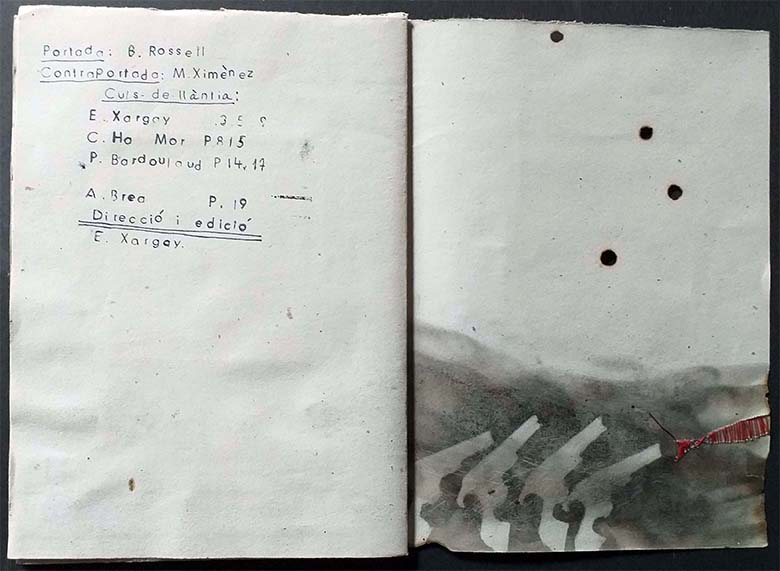 Portada: B. Rossell
ContraPortada: M. Ximènez
Culs-de-llàntia:
E. Xargay 3 5 9
C. Ha Mor P 8 15
P. Bardoulaud P 14, 17
A. Brea P. 19
Direcció i edició
E. Xargay.